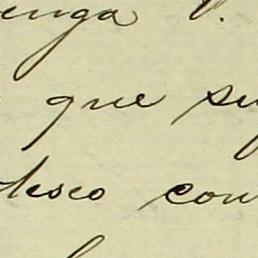 enga V.
que su
deseo con